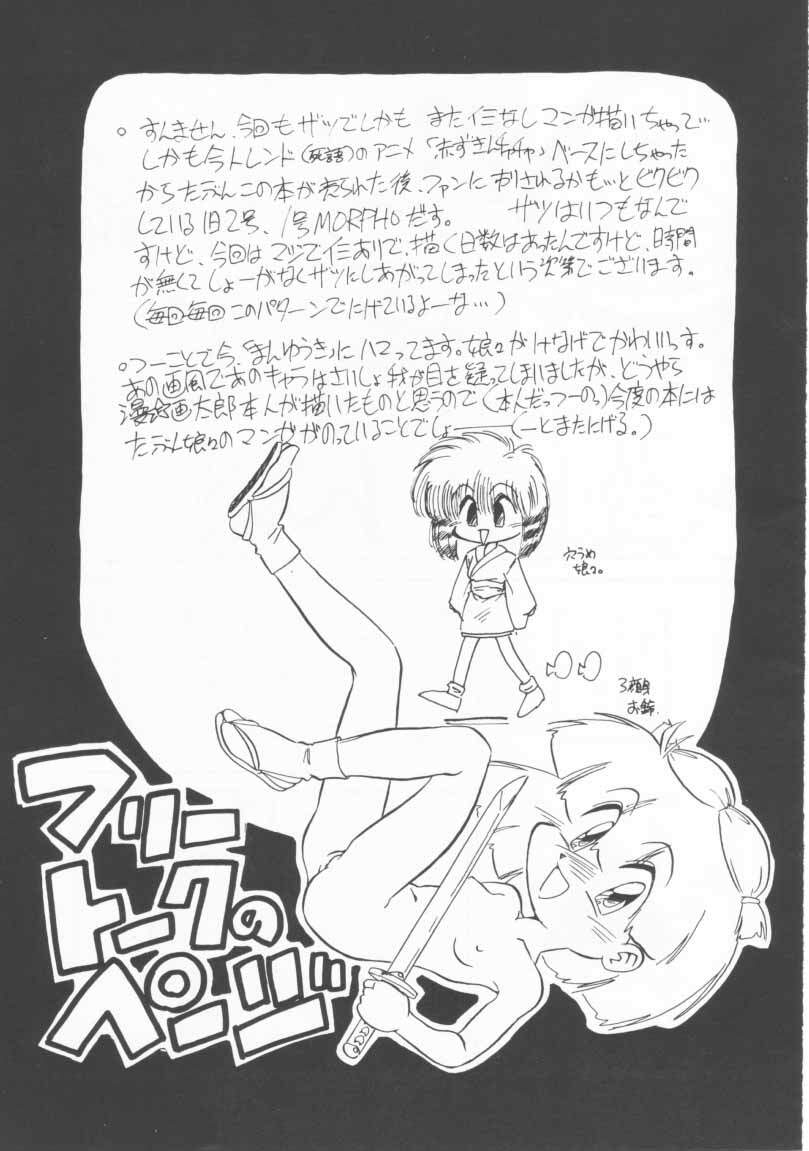 。すんません、今回もザツでしかも またイミなしマンガ描いちゃって…
しかも今トレンド(死語)のアニメ「赤ずきんチャチャ」ベースにしちゃった
からたぶんこの本が売られた後、ファンにさされるかも…とビクビク
している旧2号、1号MORPHOだす。 ザツはいつもなんで
すけど、今回はマジでイミありで、描く日数はあったんですけど、時間
が無くてしょーがなくザツにしあがってしまったという次第でございます。
(毎回毎回このパターンでにげているよーな…)
。つーことで今、「まんゆうき」にハマってます。娘々がけなげでかわいいっす。
あの画風であのキャラはさいしょ我が目を疑ってしまいましたが、どうやら
漫☆画太郎本人が描いたものと思うので(本人だっつーのっ)今度の本には
たぶん娘々のマンガがのっていることでしょーーー(ーとまたにげる。)
穴うめ
娘々。
3頭身
お鈴.
フリー
トークの
ページ